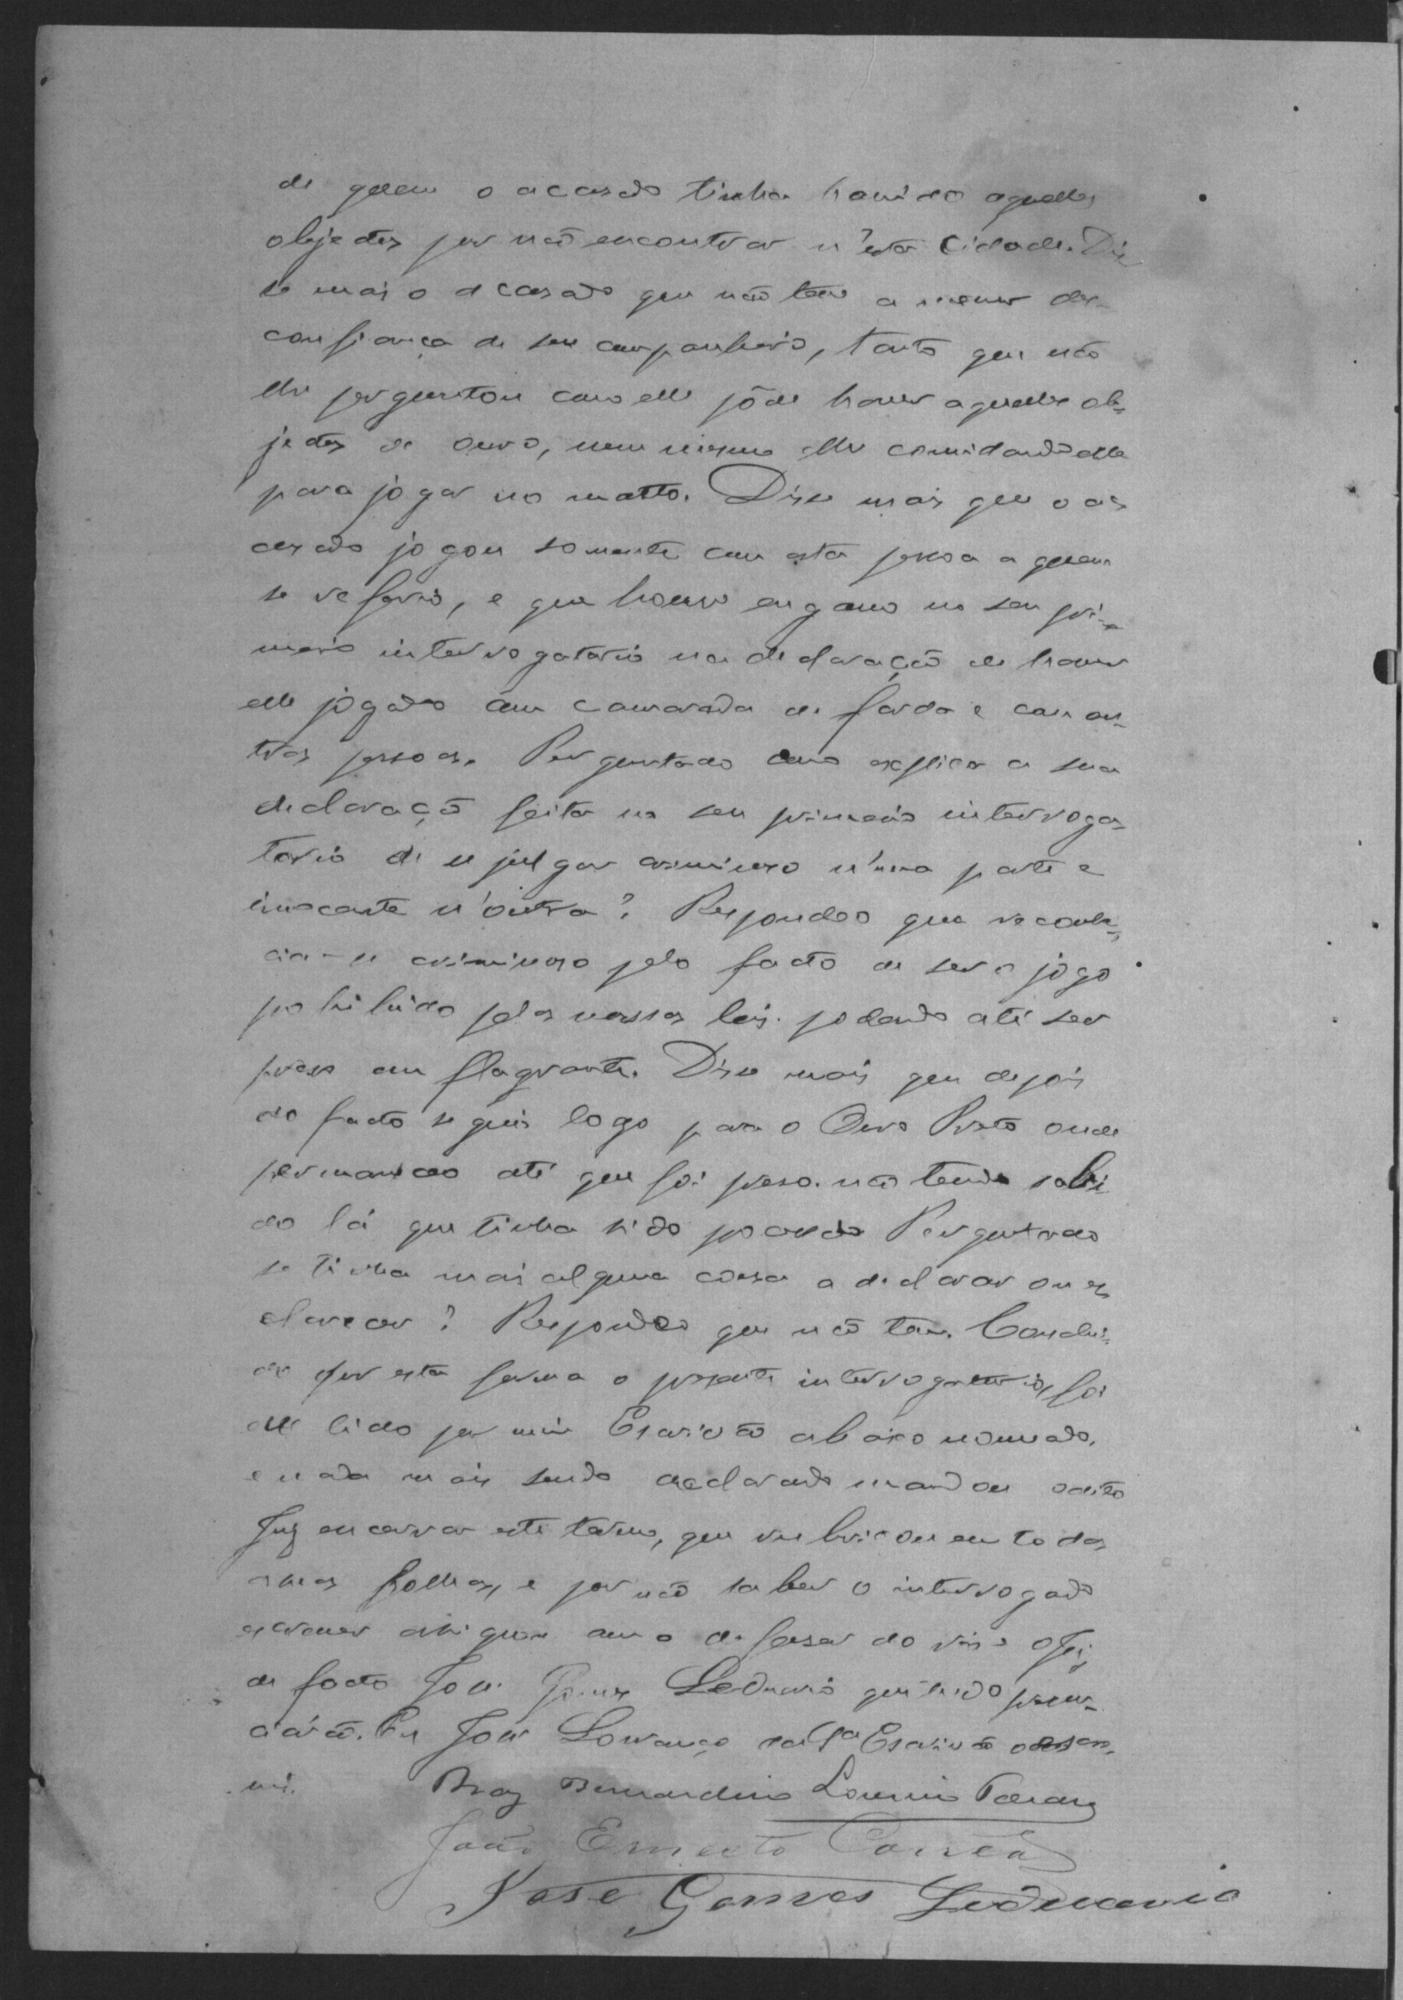 de quem o accusado tinha havido aquelles
objectos por não encontrar n'esta Cidade. Dis
se mais o accusado que não tem a menor des-
confiança de seu companheiro, tanto que não
lhe perguntou como elle pôde haver aquelles ob-
jectos de ouro, nem mesmo elle convidando elle
para jogar no matto. Disse mais que o ac
cusado jogou somente com esta pessoa a quem
se referio, e que houve engano no seu pri-
meiro interrogatorio na declaração de haver
elle jogado com camarada de farda e com ou-
tras pessoas. Perguntado como explica a sua
declaração feita no seu primeiro interroga-
torio de se julgar criminoso n'uma parte e
innocente n'outra? Respondeo que reconhe-
cia-se criminoso pelo facto de ser o jogo
prohibido pelas nossas leis podendo até ser
preso em flagrante. Disse mais que depois
do facto seguio logo para o Ouro Preto onde
permaneceo até que foi preso. não tendo sabi
do lá que tinha sido Perguntado
se tinha mais alguma cousa a declarar ou es
clarecer? Respondeo que não tem. Conclui-
do por esta forma o presente interrogatorio, foi
elle lido por mim Escrivão abaixo nomeado,
e nada mais sendo declarado mandou o dito
Juiz encerrar este termo, que rubricou em todas
as suas folhas, e por não saber o interrogado
escrever assigna com o defensor do réo
de facto José Gomes Ledovino presen-
ciarão. Eu José Lourenço Escrivão o escre-
vi. Braz Bernardino Loureiro Tavares
João Ernesto Corrêa
José Gomes